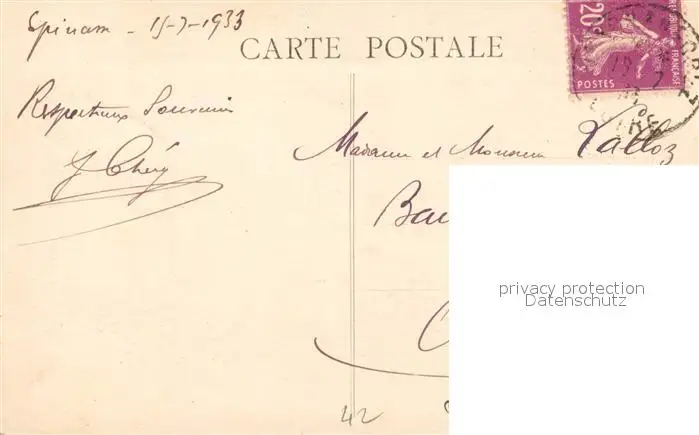 Epinac - 15-7-1933
CARTE POSTALE
20c
POSTES
FRANÇAISE
Respectueux Souvenir
J Chéry
Madame et Monsieur Lalloz
privacy protection
Datenschutz
42